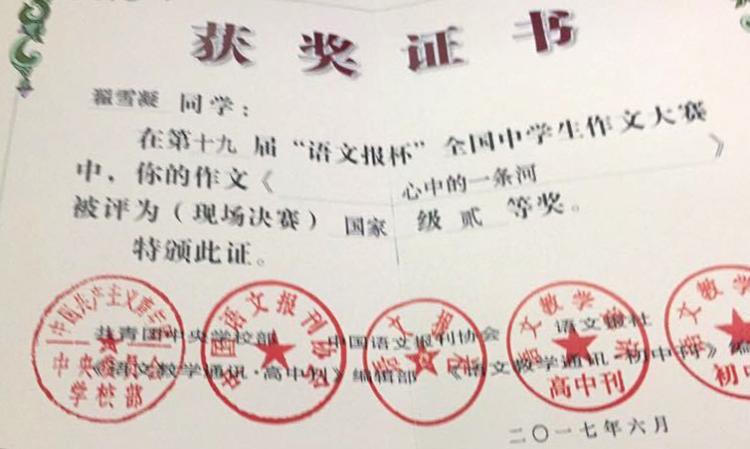 获奖证书
翟雪凝 同学：
在第十九届“语文报杯”全国中学生作文大赛
中，你的作文《心中的一条河》
被评为（现场决赛）国家级贰等奖。
特颁此证。
共青团中央学校部 中国语文报刊协会 语文报社
《语文教学通讯·高中刊》编辑部 《语文教学通讯·初中刊》编
中央委员会
学校部
中国语文报刊协会
语文报社
语文教学通讯
高中刊
语文教学
初中
二〇一七年六月